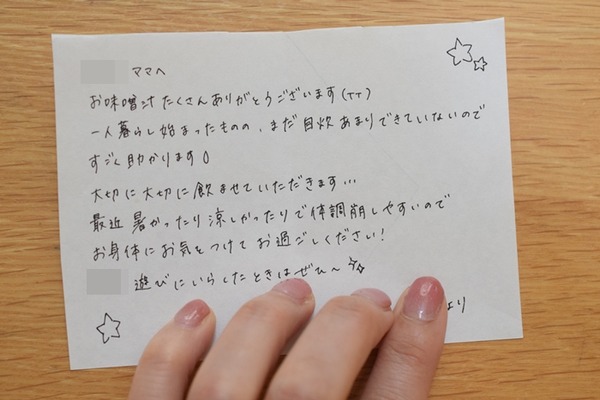 ママへ
お味噌汁たくさんありがとうございます(TT)
一人暮らし始まったものの、まだ自炊あまりできていないので
すごく助かります
大切に大切に飲ませていただきます…
最近暑かったり涼しかったりで体調崩しやすいので
お身体にお気をつけてお過ごしください!
遊びにいらしたときはぜひ〜
より